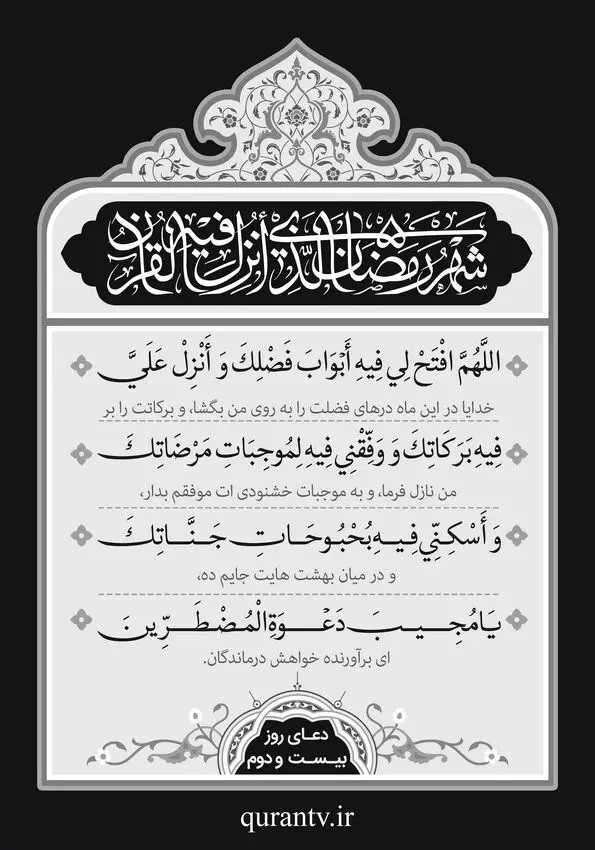 شَهْرُ رَمَضَانَ الَّذِي أُنْزِلَ فِيهِ الْقُرْآنُ
اللَّهُمَّ افْتَحْ لِي فِيهِ أَبْوَابَ فَضْلِكَ وَ أَنْزِلْ عَلَيَّ
خدایا در این ماه درهای فضلت را به روی من بگشا، و برکاتت را بر
فِيهِ بَرَكَاتِكَ وَ وَفِّقْنِي فِيهِ لِمُوجِبَاتِ مَرْضَاتِكَ
من نازل فرما، و به موجبات خشنودی ات موفقم بدار،
وَ أَسْكِنِّي فِيهِ بُحْبُوحَاتِ جَنَّاتِكَ
و در میان بهشت هایت جایم ده،
يَا مُجِيبَ دَعْوَةِ الْمُضْطَرِّينَ
ای برآورنده خواهش درماندگان.
دعای روز
بیست و دوم
qurantv.ir